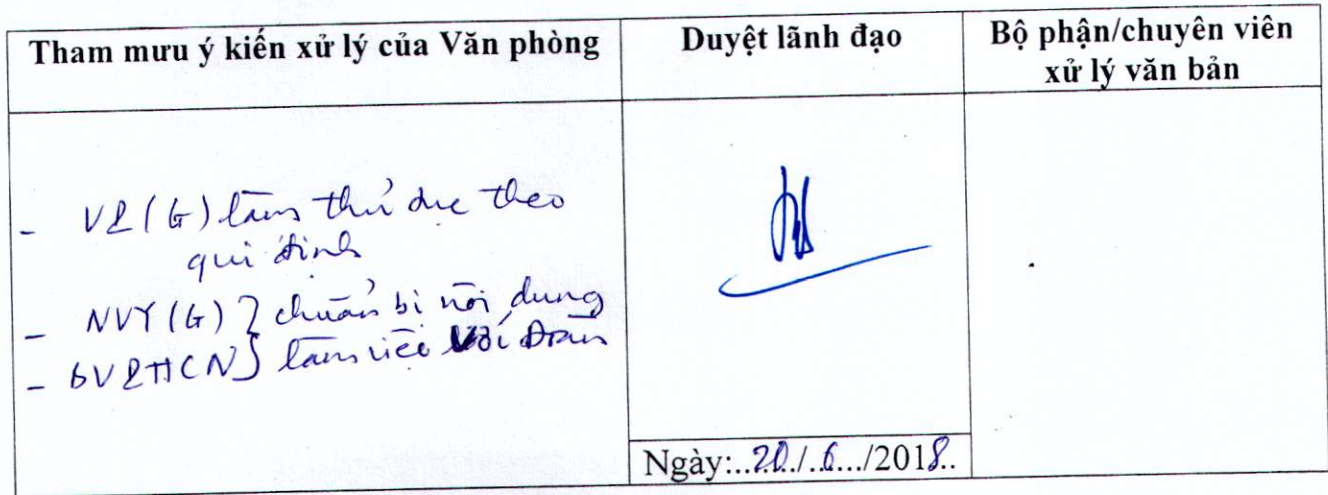 Tham mưu ý kiến xử lý của Văn phòng
Duyệt lãnh đạo
Bộ phận/chuyên viên
xử lý văn bản
- VP (G) làm thủ tục theo
qui định
- NVY (G) } chuẩn bị nội dung
- BVPHCN } làm việc với Đoàn
Ngày:..20./..6.../2018..